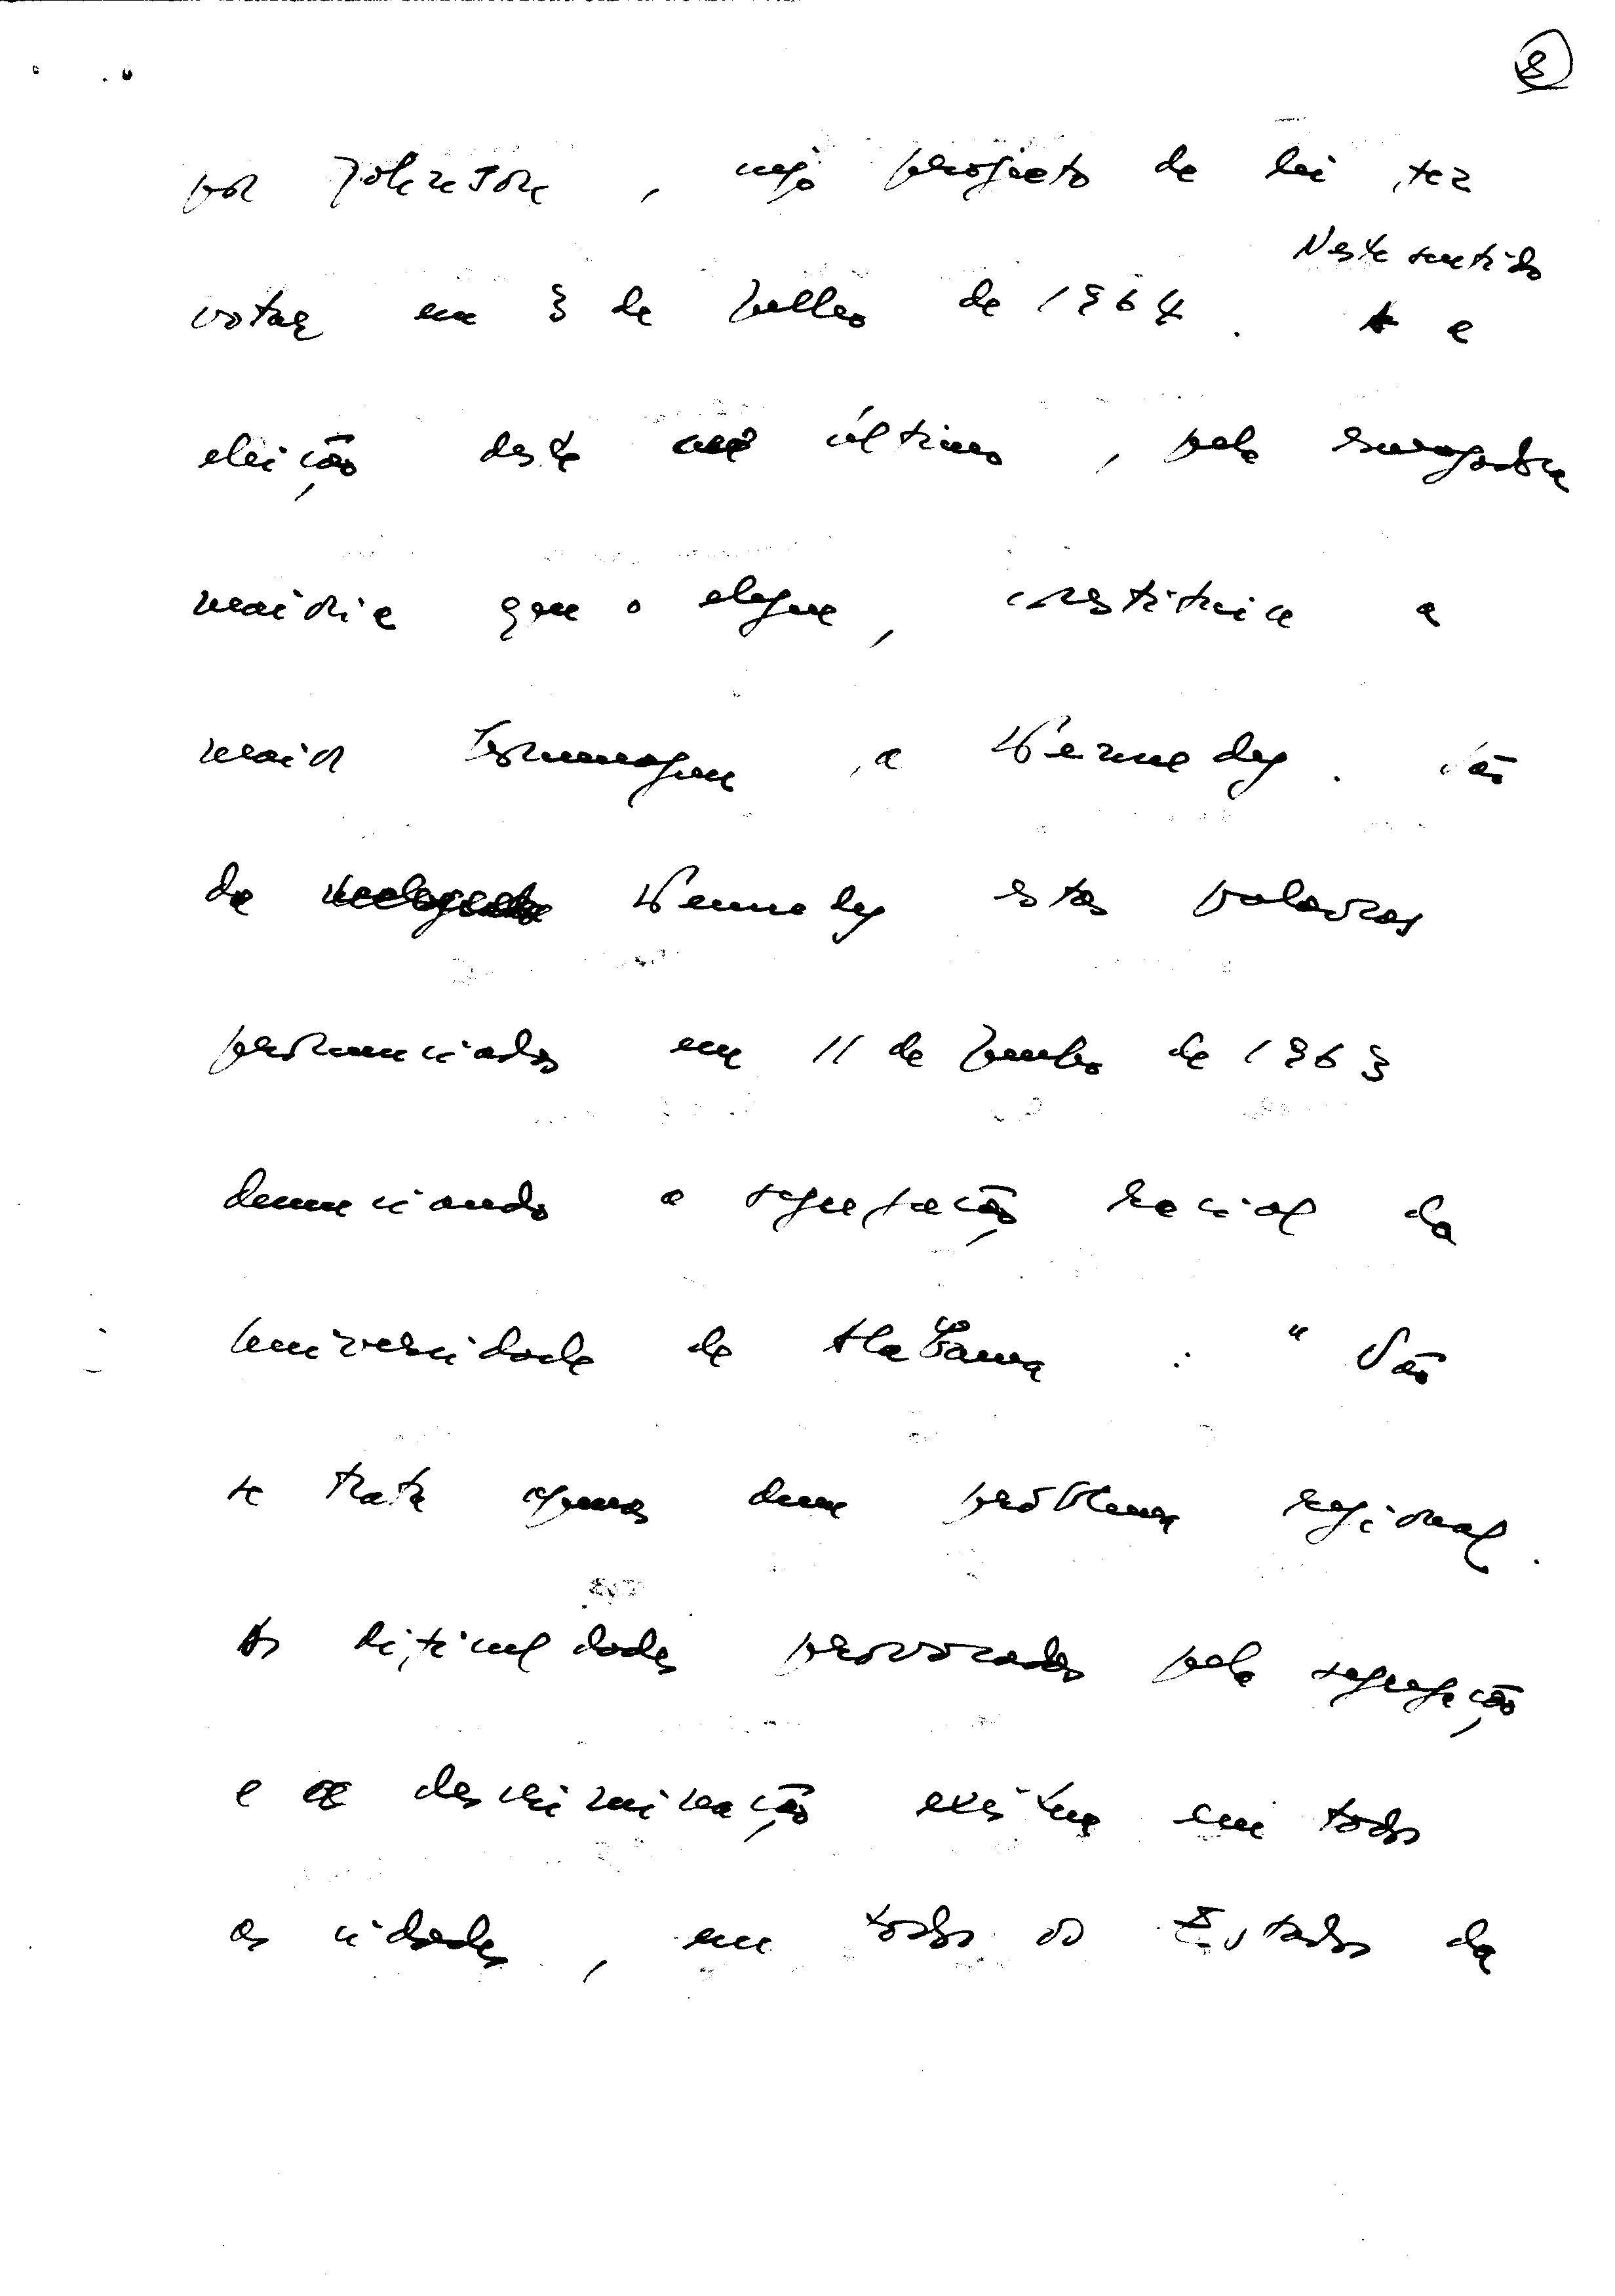 8
por Johnson, cujo projecto de lei fez
Neste sentido
votar em 3 de Julho de 1964. A e
eleição deste último, pela esmagadora
maioria que o elegeu, constituiu a
maior homenagem a Kennedy. São
de Kennedy estas palavras
pronunciadas em 11 de Junho de 1963
denunciando a segregação racial da
Universidade de Alabama : " Não
se trata apenas dum problema regional.
As dificuldades provocadas pela segregação
e descriminação existem em todas
as cidades, em todos os Estados da